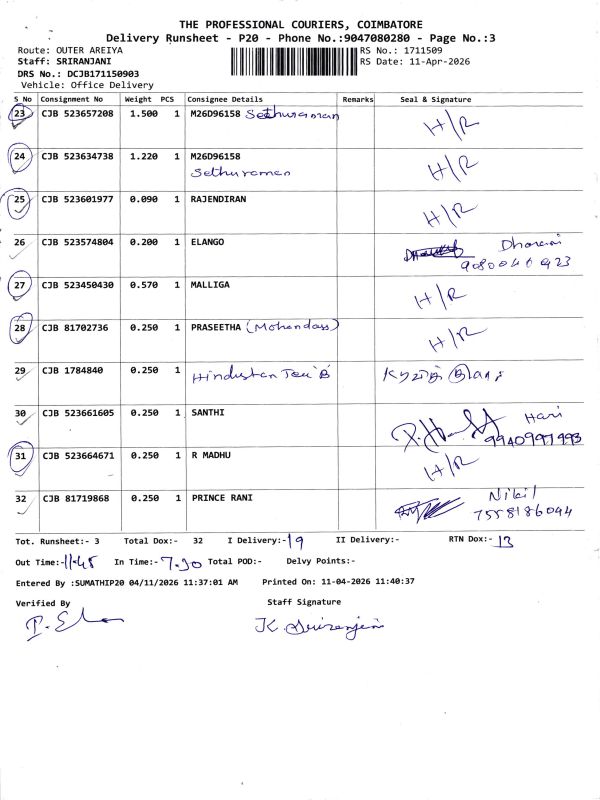 THE PROFESSIONAL COURIERS, COIMBATORE
Delivery Runsheet - P20 - Phone No.:9047080280 - Page No.:3
Route: OUTER AREIYA RS No.: 1711509
Staff: SRIRANJANI RS Date: 11-Apr-2026
DRS No.: DCJB171150903
Vehicle: Office Delivery
S No Consignment No Weight PCS Consignee Details Remarks Seal & Signature
23 CJB 523657208 1.500 1 M26D96158 Sethuraman H/R
24 CJB 523634738 1.220 1 M26D96158 H/R
Sethuraman
25 CJB 523601977 0.090 1 RAJENDIRAN H/R
26 CJB 523574804 0.200 1 ELANGO
27 CJB 523450430 0.570 1 MALLIGA H/R
28 CJB 81702736 0.250 1 PRASEETHA (Mohandass) H/R
29 CJB 1784840 0.250 1 Hindustan
30 CJB 523661605 0.250 1 SANTHI Hari
9940997993
31 CJB 523664671 0.250 1 R MADHU H/R
32 CJB 81719868 0.250 1 PRINCE RANI Nikil
7558186094
Tot. Runsheet:- 3 Total Dox:- 32 I Delivery:-19 II Delivery:- RTN Dox:- 13
Out Time:-11.45 In Time:-7.30 Total POD:- Delvy Points:-
Entered By :SUMATHIP20 04/11/2026 11:37:01 AM Printed On: 11-04-2026 11:40:37
Verified By Staff Signature
K. Sriranjani